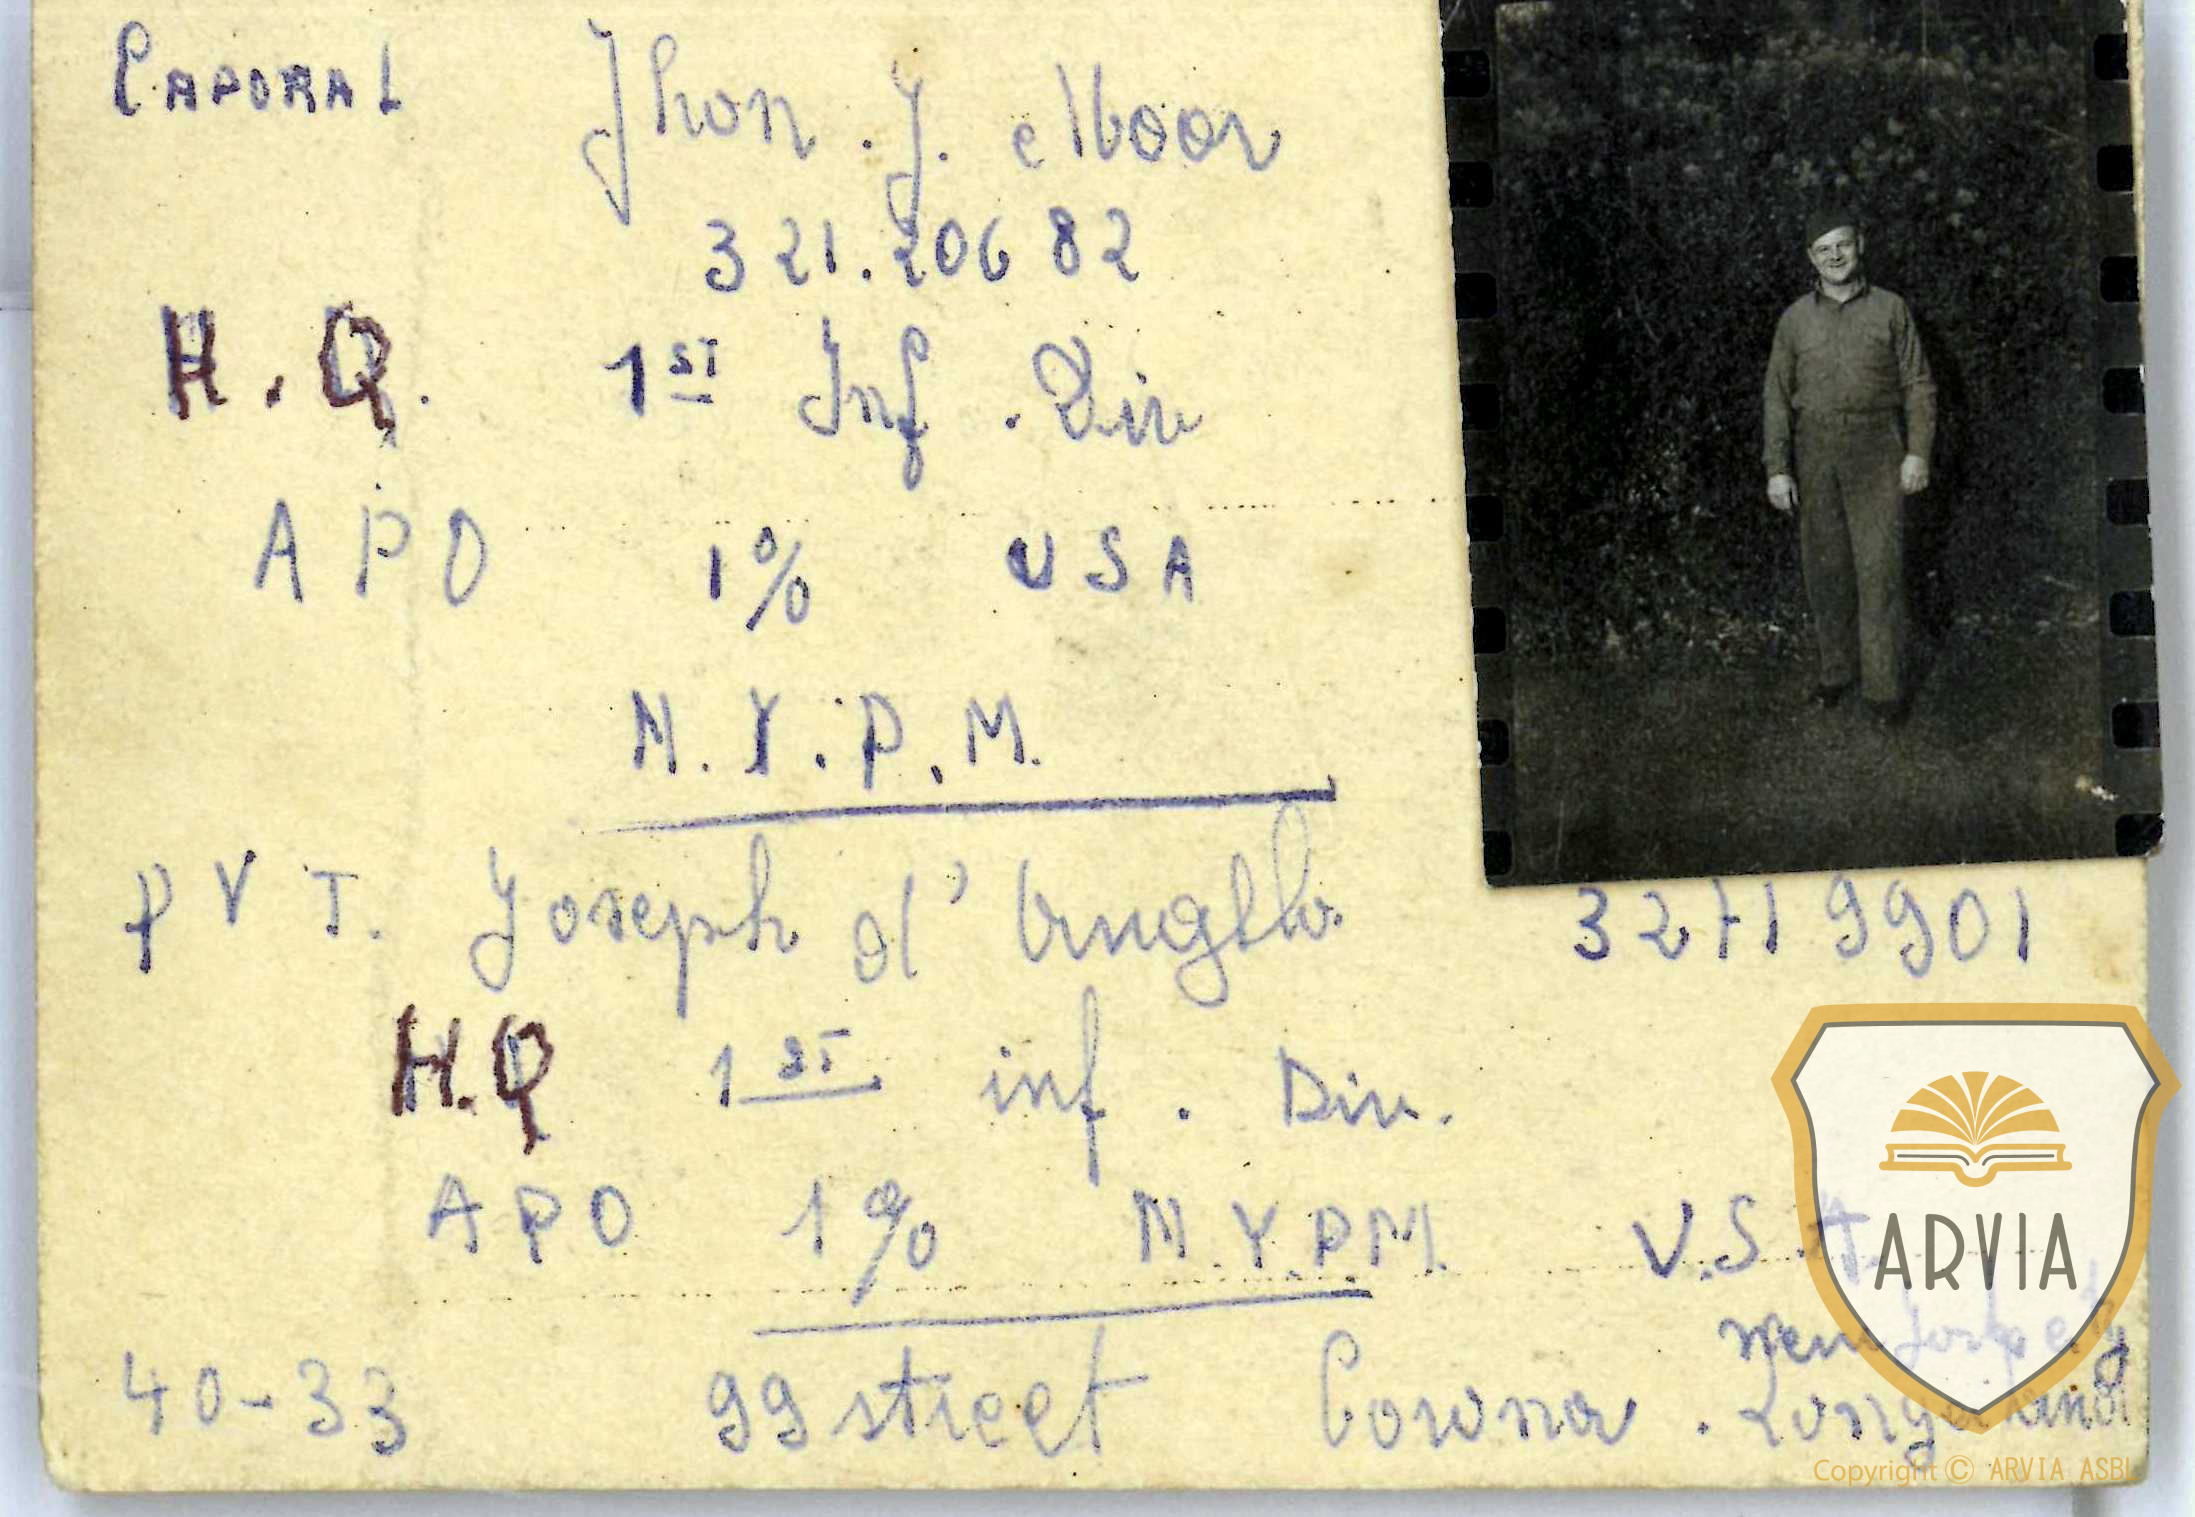 CAPORAL Jhon . J. Moor
321.206 82
H.Q. 1ST Inf . Div
APO 1% USA
N.Y.P.M.
PVT. Joseph d'Anglo 32719901
H.Q 1ST inf . Div.
APO 1% N.Y.P.M. U.S.A.
40-33 99 street Corona . Long
ARVIA
Copyright © ARVIA ASBL